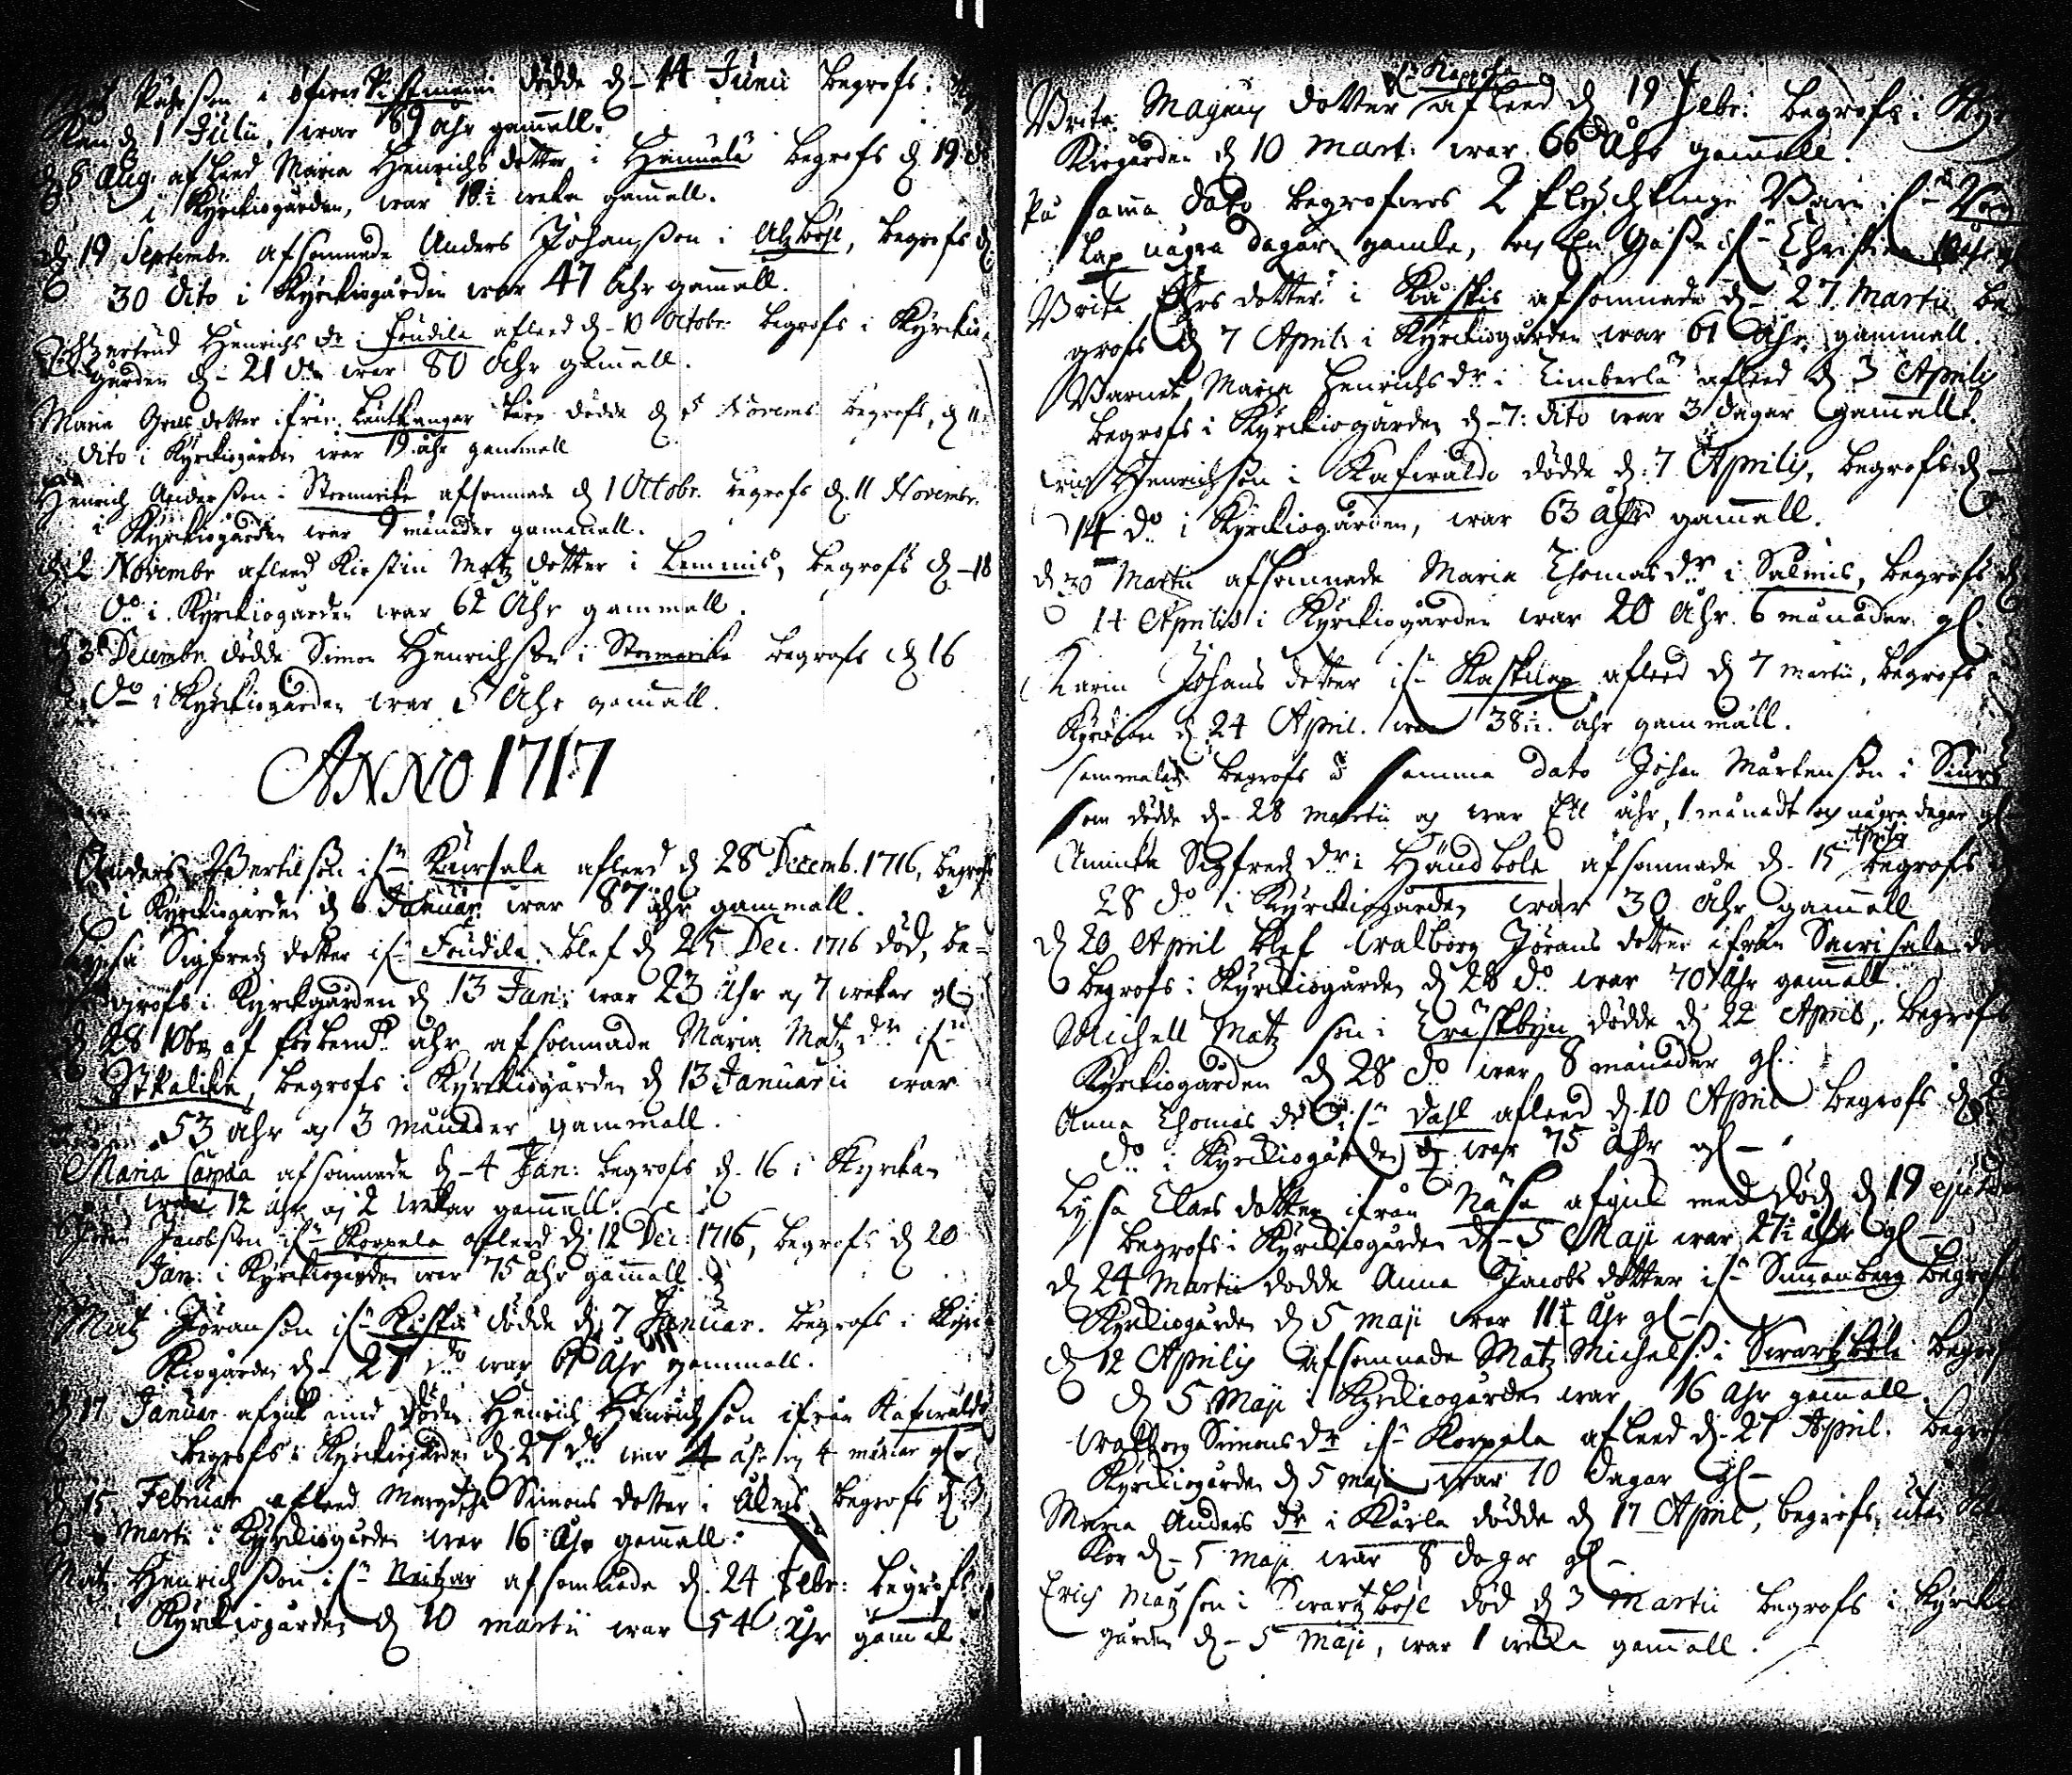 Påhrsson i öfwer Kistmeni dödde d. 14 Junii begrofs:
d. 1 Julii, war 69 åhr gamell.
d. 8 Aug. afleed Maria Henrichs dotter i Hemmelä begrofs d. 19 do
i Kyrckiogården, war 18½ weka gamell.
d. 19 Septembr. afsomnade Anders Johansson i Alzböhl, begrofs d.
30 dito i Kyrckiogården war 47 åhr gamall.
Henrichs dr i Foudila afleed d. 10 Octobr. begrofs i Kyrckio
gården d. 21 do war 80 åhr gamell.
Maria dotter ifrån dödde d. 5 Novemb. begrofs, d. 11
dito i Kyrckiogården war 19 åhr gammall
Henrich Andersson i Stormerike afsomnade d. 1 Octobr. begrofs d. 11 Novembr.
i Kyrckiogården war 9 månader gammall.
d. 2 Novembr afleed Kirstin Matz dotter i Lemnis, begrofs d. 18
do i Kyrckiogården war 62 åhr gammall.
d. 3 Decembr. dödde Simon Henrichsson i Stormerike begrofs d. 16
do i Kyrckiogården war 5 åhr gamall.
ANNO 1717
Anders Bertilsson ifn Kårsala afleed d. 28 Decemb. 1716, begrofs
i Kyrckiogården d. 6 Januar. war 87 åhr gammall.
Sigfredz dotter ifn Foudila blef d. 25 Dec. 1716 död, be-
grofs i Kyrckgården d. 13 Jan: war 23 åhr og 7 wekar gl
d. 28 10br af åhr afsomnade Maria Matz dr ifn
begrofs i Kyrckiogården d. 13 Januarii war
53 åhr og 3 månader gammall.
Maria afsomnade d. 4 Jan: begrofs d. 16 i Kyrckan
war 12 åhr og 2 wekar gamall.
Jacobsson ifn Korpela afleed d. 12 Dec: 1716, begrofs d. 20
Jan: i Kyrckiogården war 75 åhr gamall.
Matz Jöransson ifn Kiskis dödde d. 7 Januar. begrofs i Kyrc
kiogården d. 27 do war åhr gammall.
d. 17 Januar afgik med döden Henrich Henrichsson ifrån Kafwaldö
begrofs i Kyrckiogården d. 27 do war 4 åhr og 4 månar gl
d. 15 Februar afleed Margetha Simons dotter i Alnis begrofs d. 3
Martii i Kyrckiogården war 16 åhr gamall.
Matz Henrichsson ifn Neitzar afsomnade d. 24 Febr: begrofs
i Kyrckiogården d. 10 martii war 54 åhr gamal.
Brita Magnus dotter ifn afleed d. 19 Febr: begrofs i
Kiogården d. 10 Mart: war 66 åhr gamall.
På samma dato begrofwos 2 flychtlinge Barn ifn
lax några dagar gamla, og En Gosse ifn Christin
Brita Ehrs dotter i Kåskis afsomnade d. 27 Martii be
grofs d. 7 April: i Kyrckiogården war 61 åhr gammall.
Barnet Maria Henrichs dr i Timberlä afleed d. 3 Aprilis
begrofs i Kyrckiogården d. 7: dito war 3 dagar gamallt.
Henrichsson i Kafwaldö dödde d. 7 Aprilis, begrofs d.
14 do i Kyrckiogården, war 63 åhr gamall.
d. 30 Martii afsomnade Maria Thomas dr i Salmis, begrofs d.
14 Aprilis i Kyrckiogården war 20 åhr 6 månader gl.
Karin Johans dotter ifn Kaskilax afleed d. 7 Martii, begrofs
Kyrckan d. 24 April. war 38½ åhr gammall.
sammaledz begrofs å samma dato Johan Mårtensson i
som dödde d. 28 Martii og war Ett åhr, 1 månadt og någre dagar gl
Annicka Sigfredz dr i Håndböle afsomnade d. 15 Aprilis begrofs
28 do i Kyrckiogården war 30 åhr gamall
d. 20 April blef Walborg Jörans dotter ifrån
begrofs i Kyrckiogården d. 28 do war 70 åhr gamall.
Michell Matz son i Träskbyn dödde d. 22 April, begrofs
Kyrckiogården d. 28 do war 8 månader gl:
Anna Thomas dr ifn Dahl afleed d. 10 April begrofs d.
do i Kyrckiogården war 75 åhr gl
Lysa Claes dotter ifrån Näse afgik med döden d. 19
begrofs i Kyrckiogården d. 5 Maji war 27½ åhr gl
d. 24 Martii dödde Anna Jacobs dotter ifn Sunnanberg begrofs
Kyrckiogården d. 5 maji war 11½ åhr gl
d. 12 Aprilis afsomnade Matz Michelss i Swartzböle begrofs
d. 5 Maji i Kyrckiogården war 16 åhr gamall
Walborg Simons dr ifn Korpela afleed d. 27 April. begrofs
Kyrckiogården d. 5 maji war 10 dagar gl
Maria Anders dr i Kårla dödde d. 17 April, begrofs, utan
d. 5 maji war 8 dagar gl
Erich Matzson i Swartzböhl död d. 3 Martii begrofs i Kyrckio
gården d. 5 Maji, war 1 weka gamall.